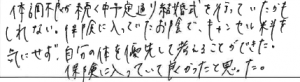 体調不良が続く中予定通り結婚式を行っていたかも
しれない。保険に入っていたお陰で、キャンセル料を
気にせず自分の体を優先して考えることができた。
保険に入っていて良かったと思った。